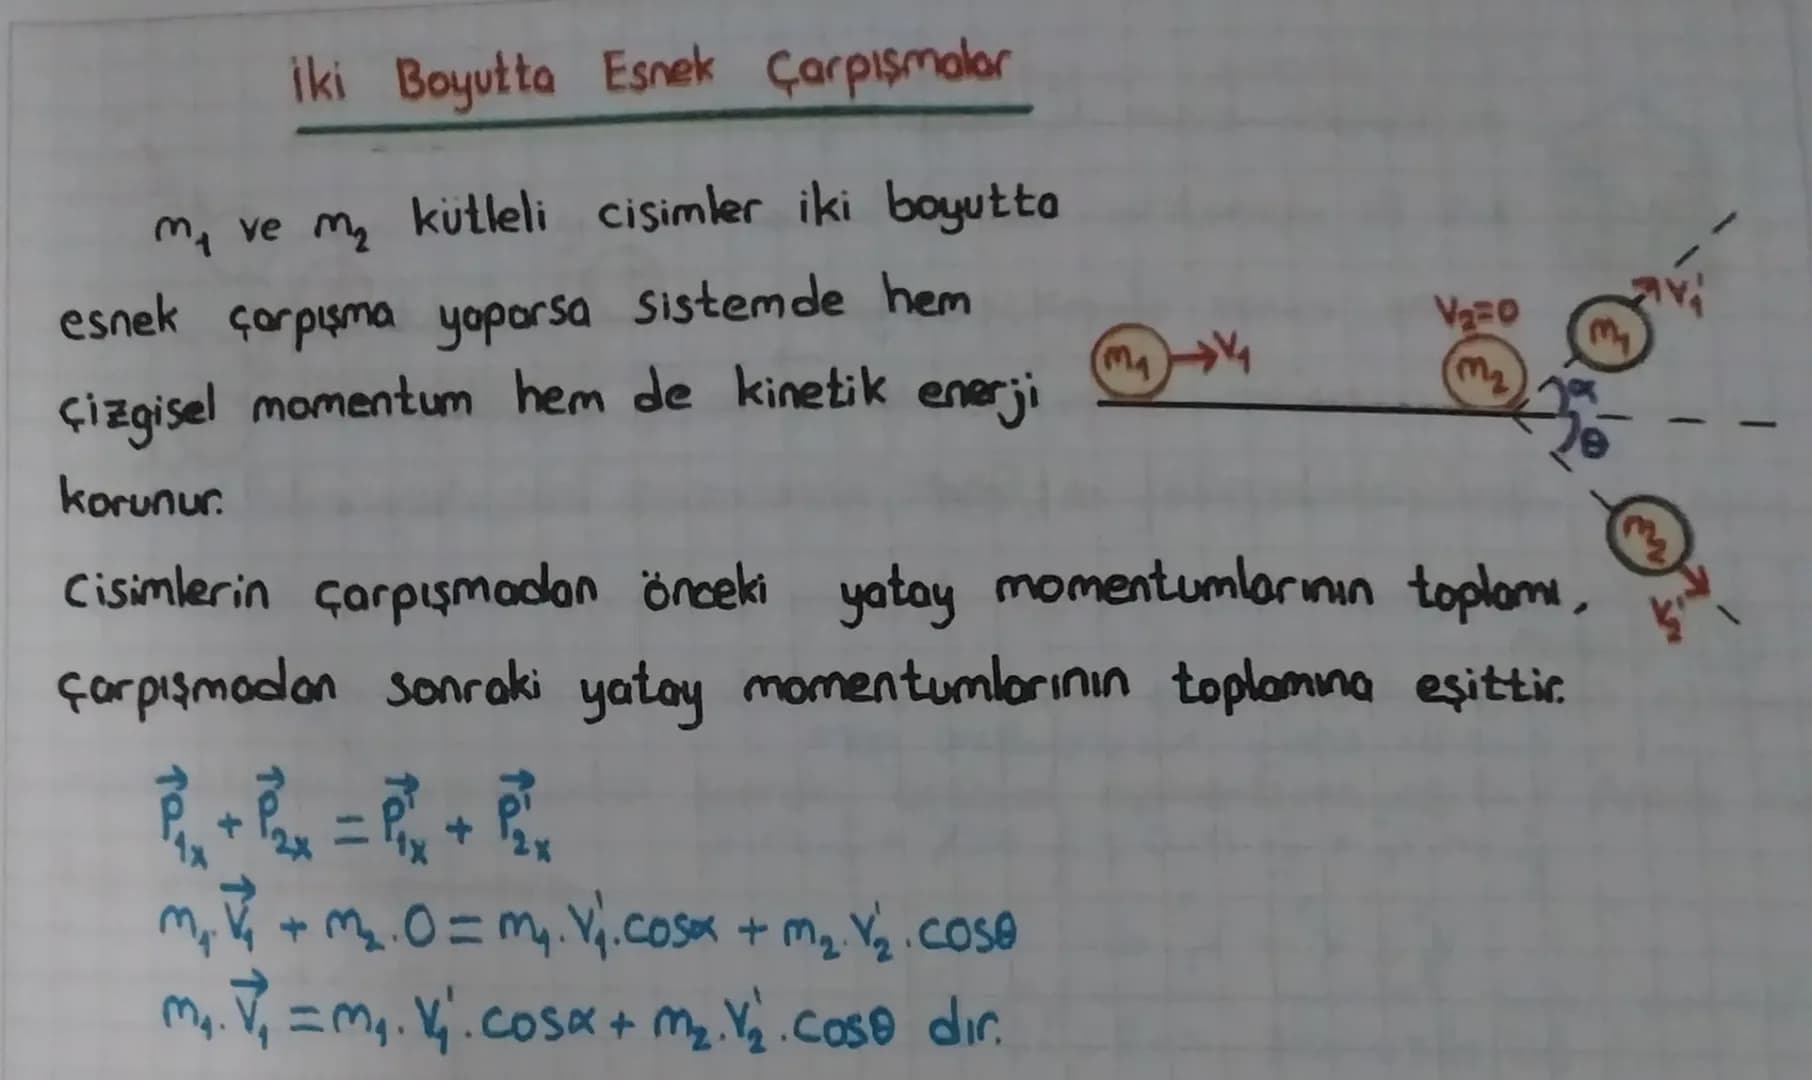 İki Boyutta Esnek Çarpışmalar
m₁ ve m₂ kütleli cisimler iki boyutta
esnek çarpışma yaparsa sistemde hem
çizgisel momentum hem de kinetik enerji
korunur.
m₁ → V₁
V₂=0
m₂
m₁
V₁'
α
θ
m₂
V₂'
Cisimlerin çarpışmadan önceki yatay momentumlarının toplamı,
çarpışmadan sonraki yatay momentumlarının toplamına eşittir.
P⃗₁ₓ + P⃗₂ₓ = P⃗₁ₓ' + P⃗₂ₓ'
m₁.V⃗₁ + m₂.0 = m₁.V₁'.cosα + m₂.V₂'.cosθ
m₁.V⃗₁ = m₁.V₁'.cosα + m₂.V₂'.cosθ dır.